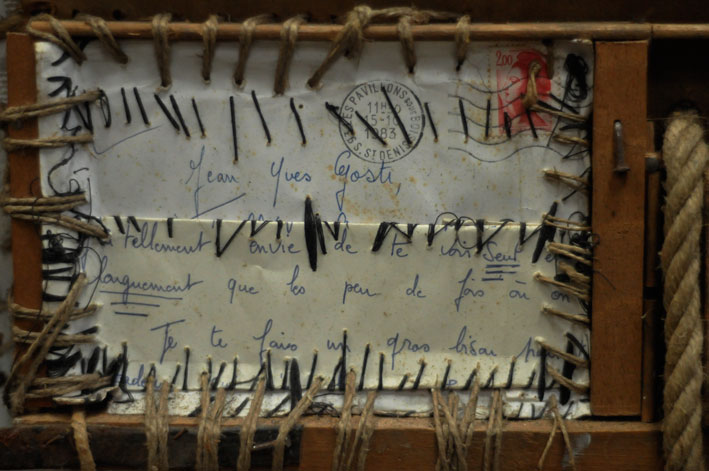 2,00
LES PAVILLONS sous BOIS
15-1
1983
S. ST DENIS
Jean Yves Gosti,
tellement envie de te voir Seul et
longuement que les peu de fois où on
Je te fais un gros bisou